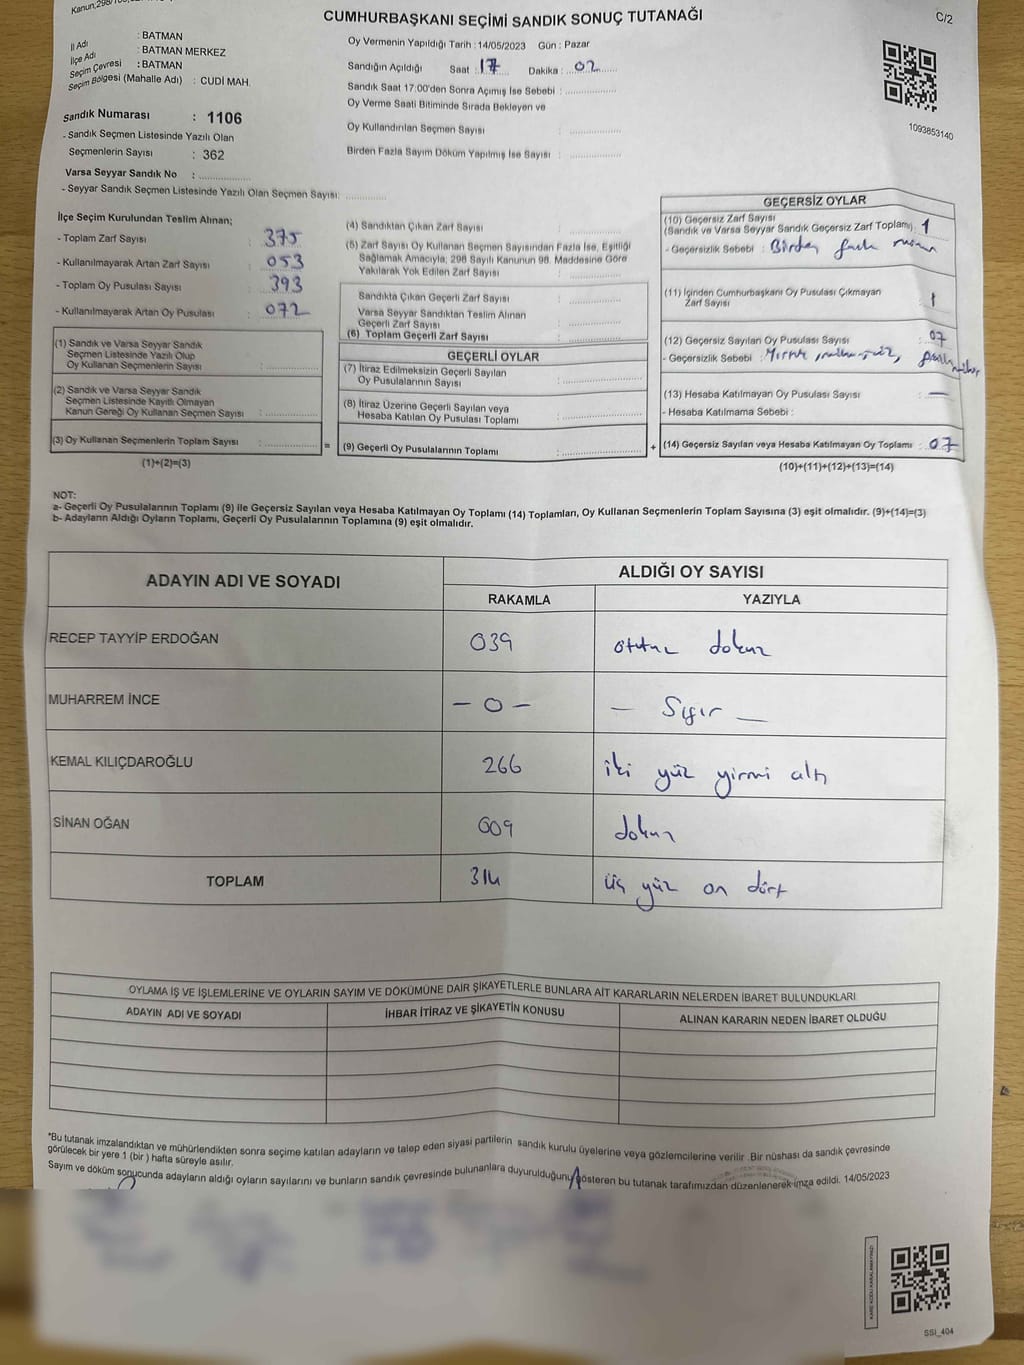 CUMHURBAŞKANI SEÇİMİ SANDIK SONUÇ TUTANAĞI
C/2
İl Adı : BATMAN
İlçe Adı : BATMAN MERKEZ
Seçim Çevresi : BATMAN
Seçim Bölgesi (Mahalle Adı) : CUDİ MAH.
Oy Vermenin Yapıldığı Tarih : 14/05/2023 Gün : Pazar
Sandığın Açıldığı Saat : 17 Dakika : 02
Sandık Saat 17:00'den Sonra Açımış İse Sebebi :
Oy Verme Saati Bitiminde Sırada Bekleyen ve
Oy Kullandırılan Seçmen Sayısı :
Birden Fazla Sayım Döküm Yapılmış İse Sayısı :
1093853140
Sandık Numarası : 1106
- Sandık Seçmen Listesinde Yazılı Olan
Seçmenlerin Sayısı : 362
Varsa Seyyar Sandık No :
- Seyyar Sandık Seçmen Listesinde Yazılı Olan Seçmen Sayısı:
İlçe Seçim Kurulundan Teslim Alınan;
- Toplam Zarf Sayısı : 375
- Kullanılmayarak Artan Zarf Sayısı : 053
- Toplam Oy Pusulası Sayısı : 393
- Kullanılmayarak Artan Oy Pusulası : 072
(1) Sandık ve Varsa Seyyar Sandık
Seçmen Listesinde Yazılı Olup
Oy Kullanan Seçmenlerin Sayısı :
(2) Sandık ve Varsa Seyyar Sandık
Seçmen Listesinde Kayıtlı Olmayan
Kanun Gereği Oy Kullanan Seçmen Sayısı :
(3) Oy Kullanan Seçmenlerin Toplam Sayısı :
(1)+(2)=(3)
=
(4) Sandıktan Çıkan Zarf Sayısı :
(5) Zarf Sayısı Oy Kullanan Seçmen Sayısından Fazla İse, Eşitliği
Sağlamak Amacıyla; 298 Sayılı Kanunun 98. Maddesine Göre
Yakılarak Yok Edilen Zarf Sayısı :
Sandıkta Çıkan Geçerli Zarf Sayısı :
Varsa Seyyar Sandıktan Teslim Alınan
Geçerli Zarf Sayısı :
(6) Toplam Geçerli Zarf Sayısı :
GEÇERLİ OYLAR
(7) İtiraz Edilmeksizin Geçerli Sayılan
Oy Pusulalarının Sayısı :
(8) İtiraz Üzerine Geçerli Sayılan veya
Hesaba Katılan Oy Pusulası Toplamı :
(9) Geçerli Oy Pusulalarının Toplamı :
+
GEÇERSİZ OYLAR
(10) Geçersiz Zarf Sayısı
(Sandık ve Varsa Seyyar Sandık Geçersiz Zarf Toplamı) : 1
- Geçersizlik Sebebi : Birden fazla
(11) İçinden Cumhurbaşkanı Oy Pusulası Çıkmayan
Zarf Sayısı : 1
(12) Geçersiz Sayılan Oy Pusulası Sayısı : 07
- Geçersizlik Sebebi :
(13) Hesaba Katılmayan Oy Pusulası Sayısı : —
- Hesaba Katılmama Sebebi :
(14) Geçersiz Sayılan veya Hesaba Katılmayan Oy Toplamı : 07
(10)+(11)+(12)+(13)=(14)
NOT:
a- Geçerli Oy Pusulalarının Toplamı (9) ile Geçersiz Sayılan veya Hesaba Katılmayan Oy Toplamı (14) Toplamları, Oy Kullanan Seçmenlerin Toplam Sayısına (3) eşit olmalıdır. (9)+(14)=(3)
b- Adayların Aldığı Oyların Toplamı, Geçerli Oy Pusulalarının Toplamına (9) eşit olmalıdır.
ADAYIN ADI VE SOYADI
ALDIĞI OY SAYISI
RAKAMLA YAZIYLA
RECEP TAYYİP ERDOĞAN 039 otuz dokuz
MUHARREM İNCE — 0 — — Sıfır —
KEMAL KILIÇDAROĞLU 266 iki yüz yirmi altı
SİNAN OĞAN 009 dokuz
TOPLAM 314 üç yüz on dört
OYLAMA İŞ VE İŞLEMLERİNE VE OYLARIN SAYIM VE DÖKÜMÜNE DAİR ŞİKAYETLERLE BUNLARA AİT KARARLARIN NELERDEN İBARET BULUNDUKLARI
ADAYIN ADI VE SOYADI İHBAR İTİRAZ VE ŞİKAYETİN KONUSU ALINAN KARARIN NEDEN İBARET OLDUĞU
*Bu tutanak imzalandıktan ve mühürlendikten sonra seçime katılan adayların ve talep eden siyasi partilerin sandık kurulu üyelerine veya gözlemcilerine verilir .Bir nüshası da sandık çevresinde
görülecek bir yere 1 (bir ) hafta süreyle asılır.
Sayım ve döküm sonucunda adayların aldığı oyların sayılarını ve bunların sandık çevresinde bulunanlara duyurulduğunu gösteren bu tutanak tarafımızdan düzenlenerek imza edildi. 14/05/2023
KARE KODU KARALAMAYINIZ!
SSI_404